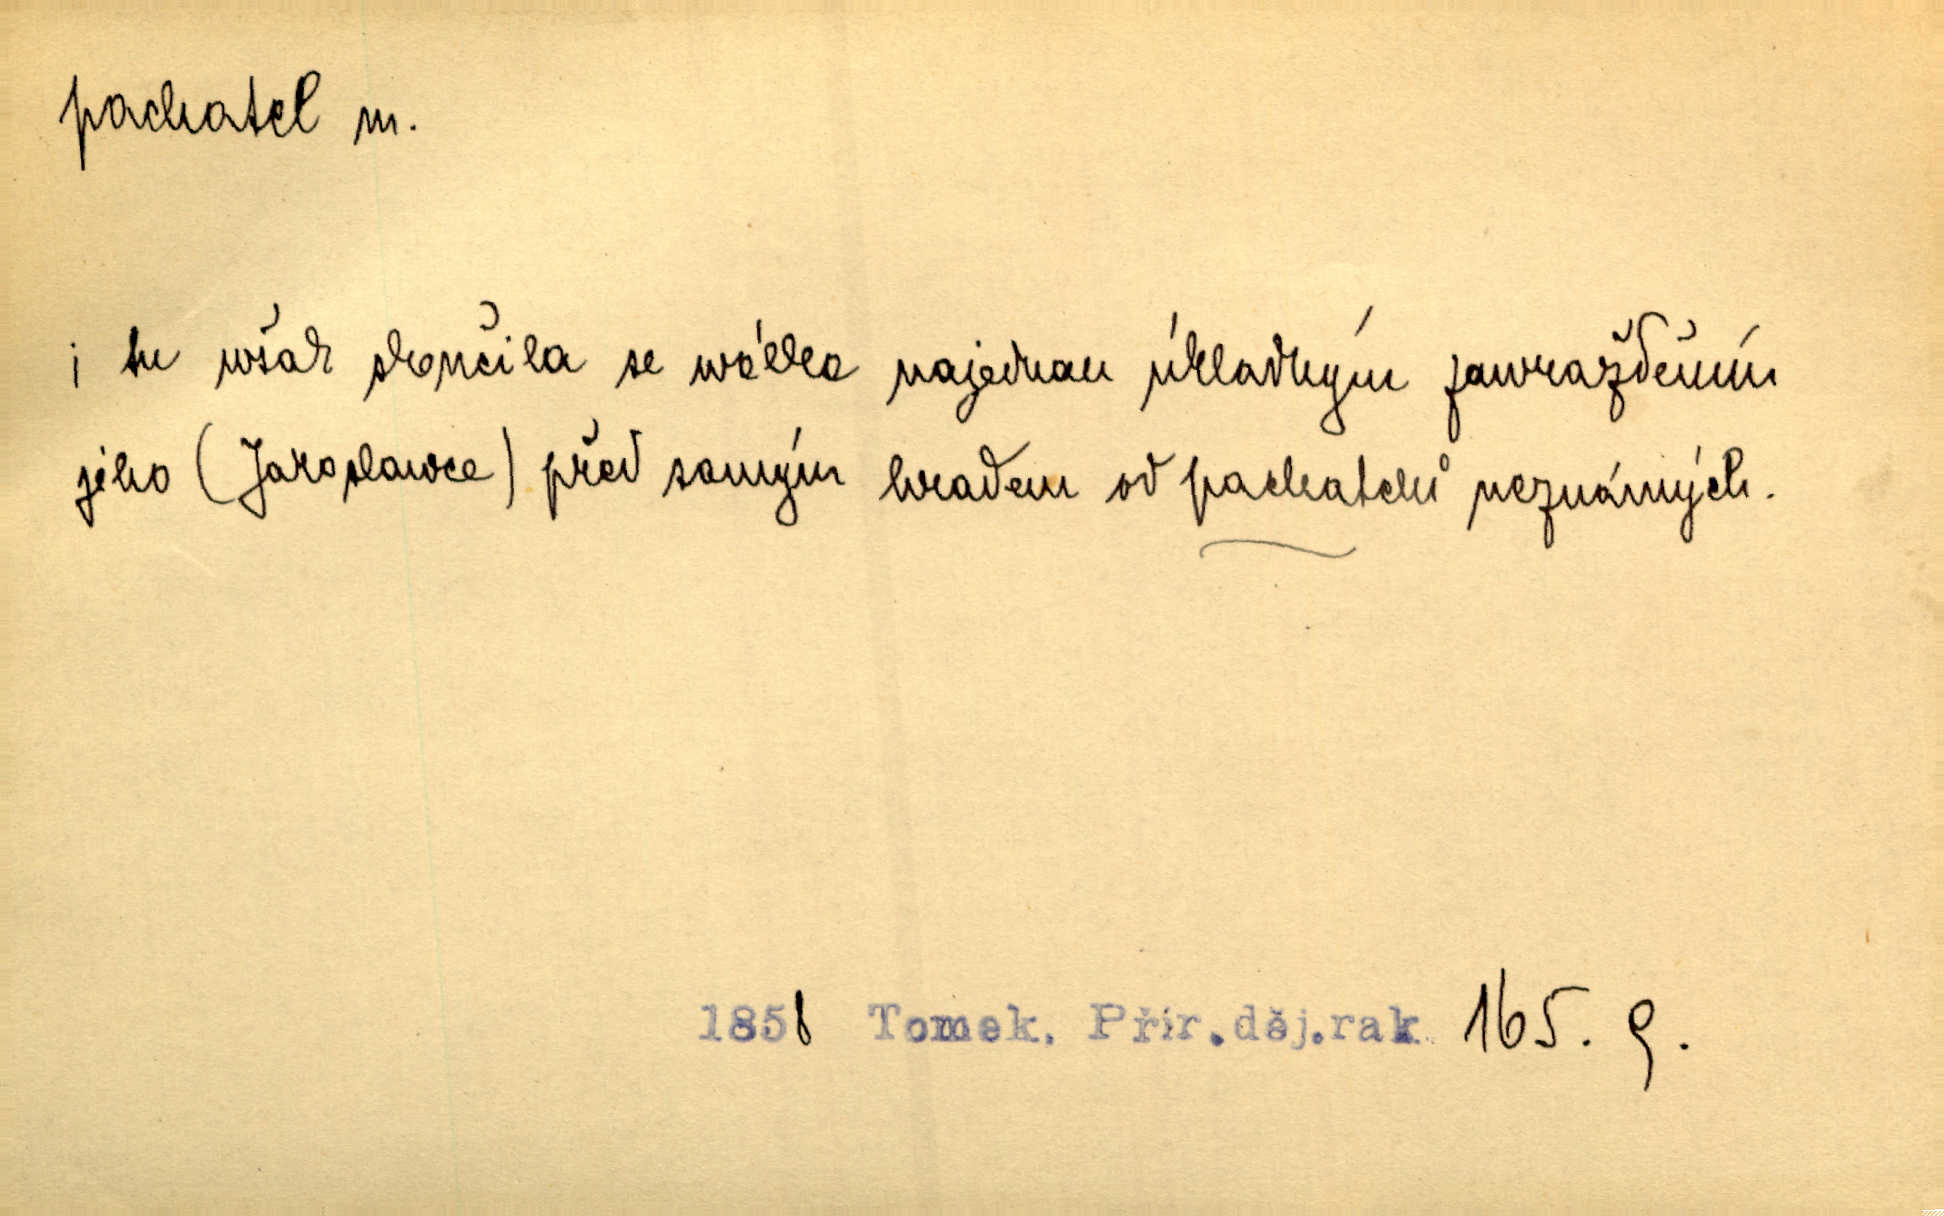 pachatel m.
i tu wšak skončila se wálka najednau úkladným zawražděním
jeho (Jaroslawce) před samým hradem od pachatelů neznámých.
1858 Tomek. Přír.děj.rak 165. 9.